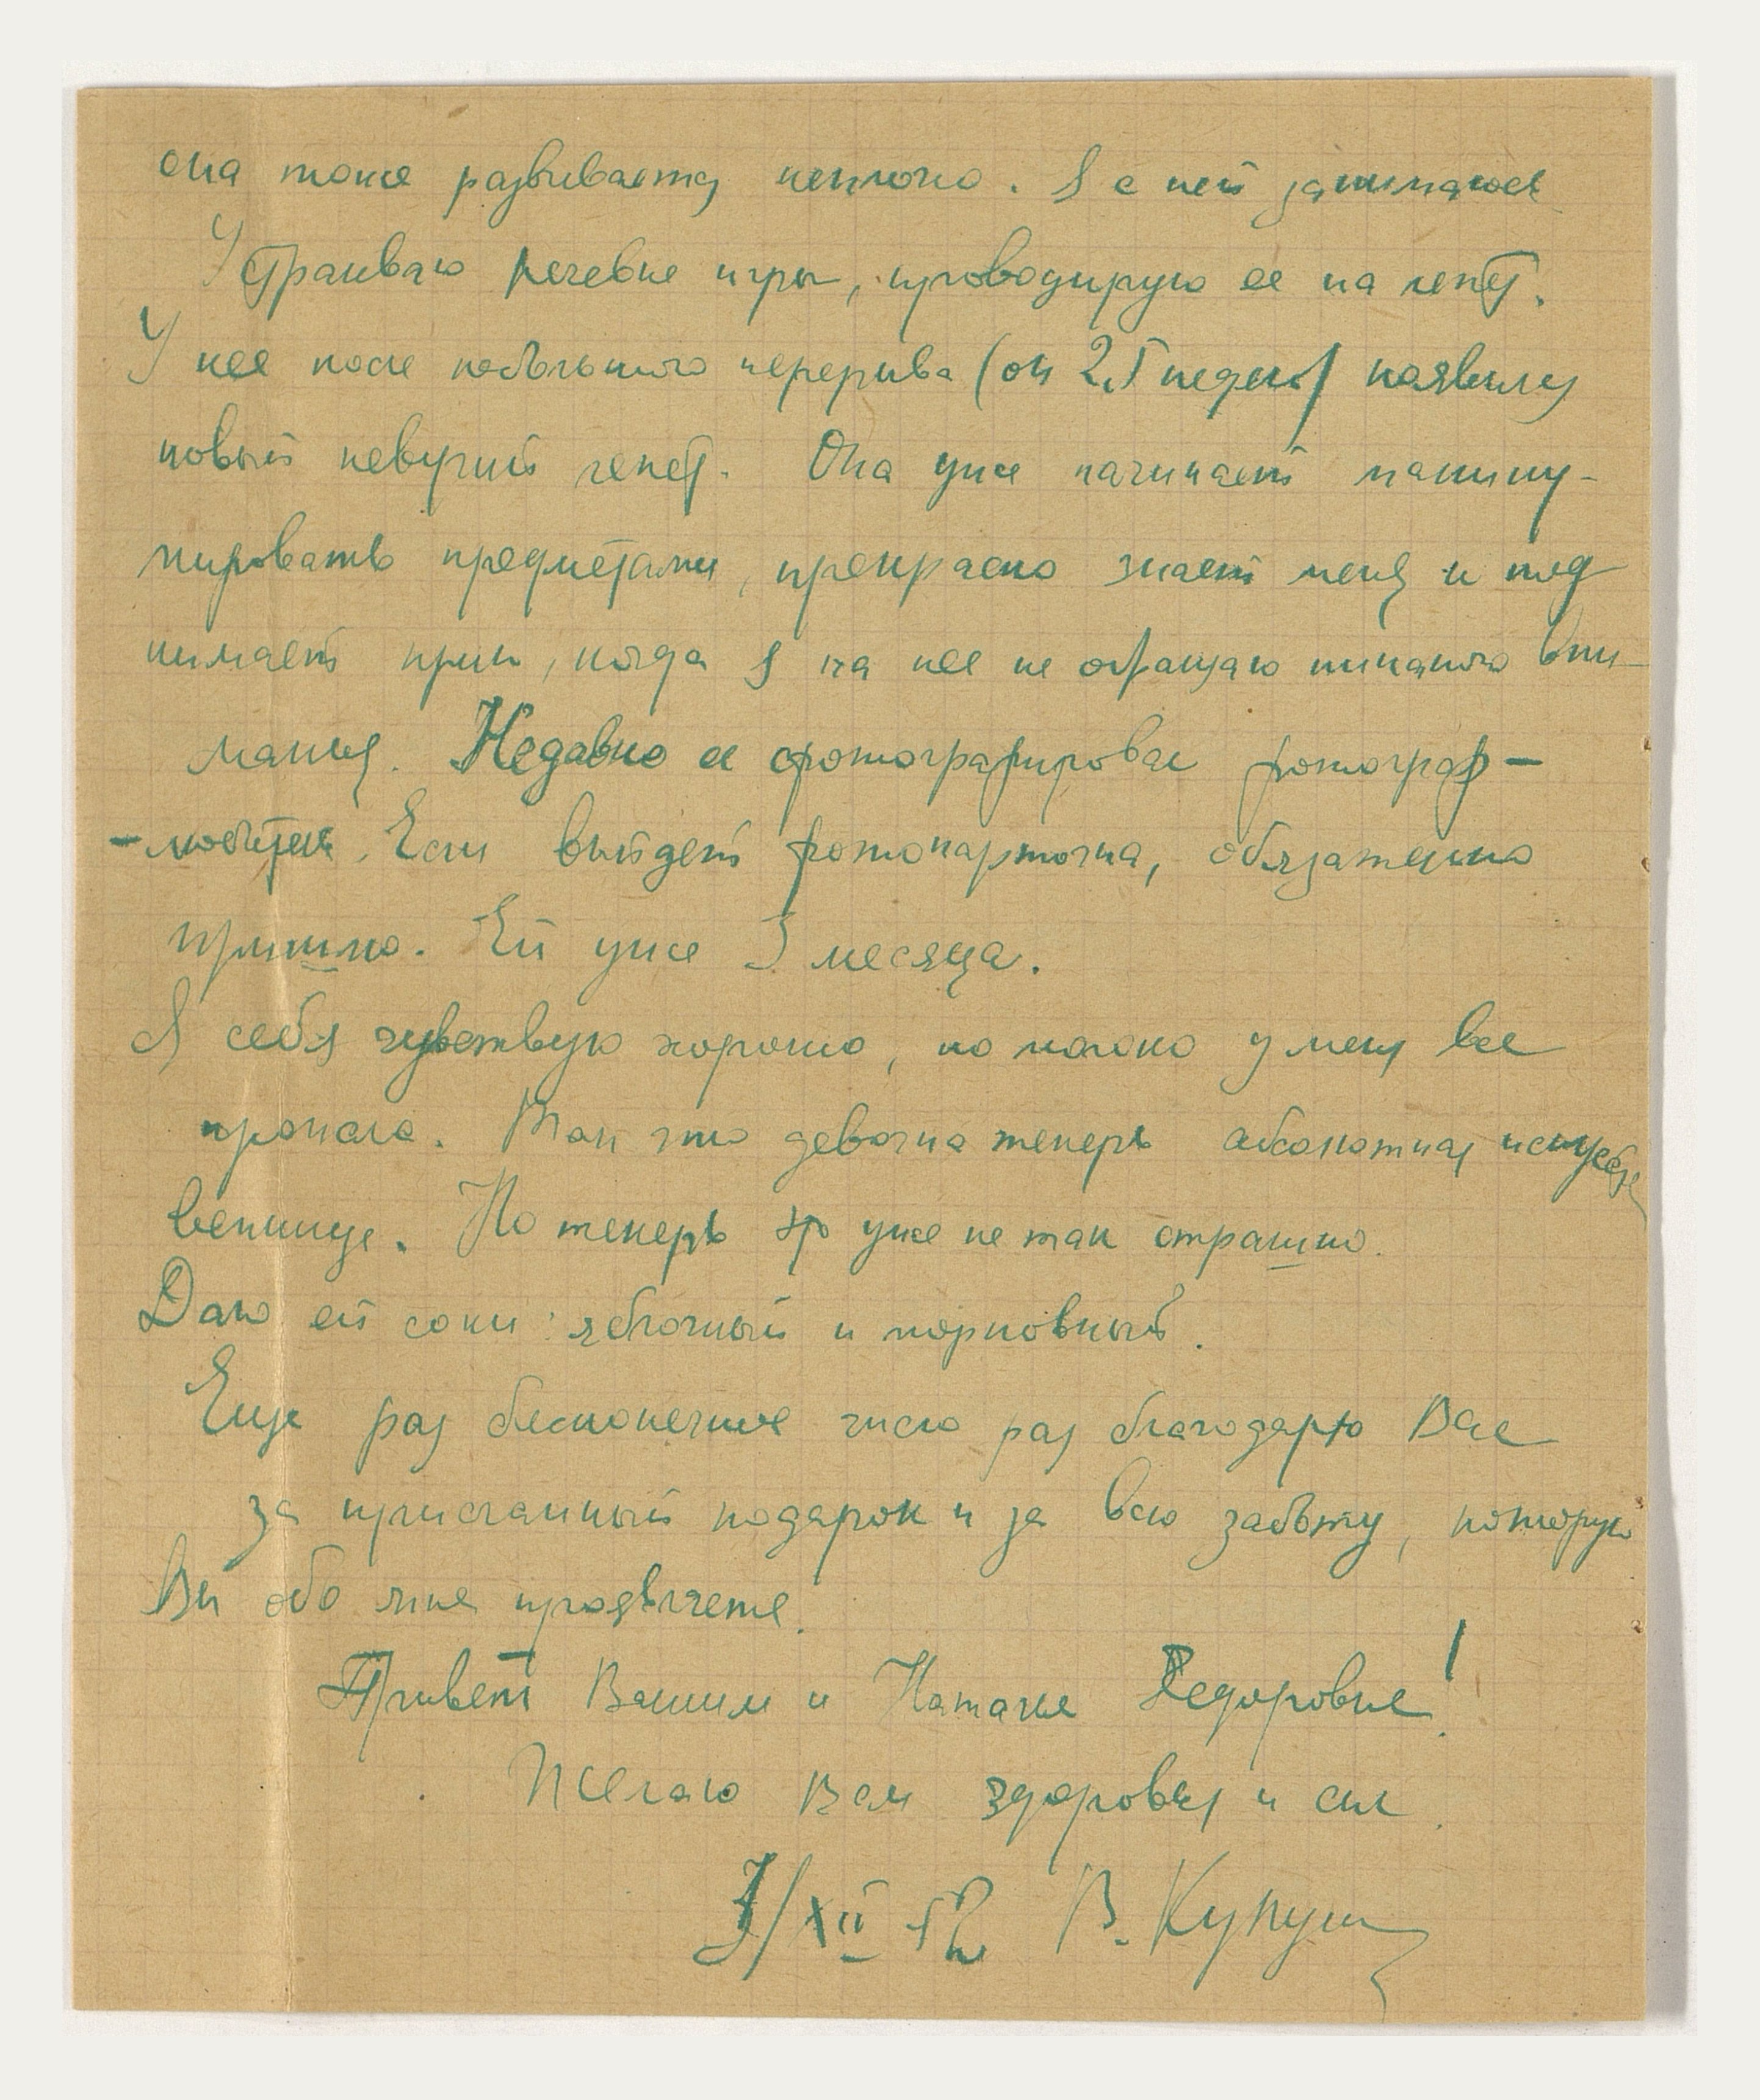 она тоже развивается неплохо. Я с ней занимаюсь
Устраиваю речевые игры, провоцирую ее на лепет.
У нее после небольшого перерыва (ок 2,5 недель) появился
новый певучий лепет. Она уже начинает манипу-
лировать предметами, прекрасно знает меня и под
нимает крик, когда я на нее не обращаю никакого вни-
мания. Недавно ее фотографировал фотограф-
-любитель. Если выйдет фотокарточка, обязательно
пришлю. Ей уже 3 месяца.
Я себя чувствую хорошо, но молоко у меня все
пропало. Так что девочка теперь абсолютная искусст
венница. Но теперь это уже не так страшно.
Даю ей соки: яблочный и морковный.
Еще раз бесконечное число раз благодарю Вас
за присланный подарок и за всю заботу, которую
Вы обо мне проявляете.
Привет Вашим и Наталье Федоровне!
Желаю Вам здоровья и сил.
3/XII 52 В.